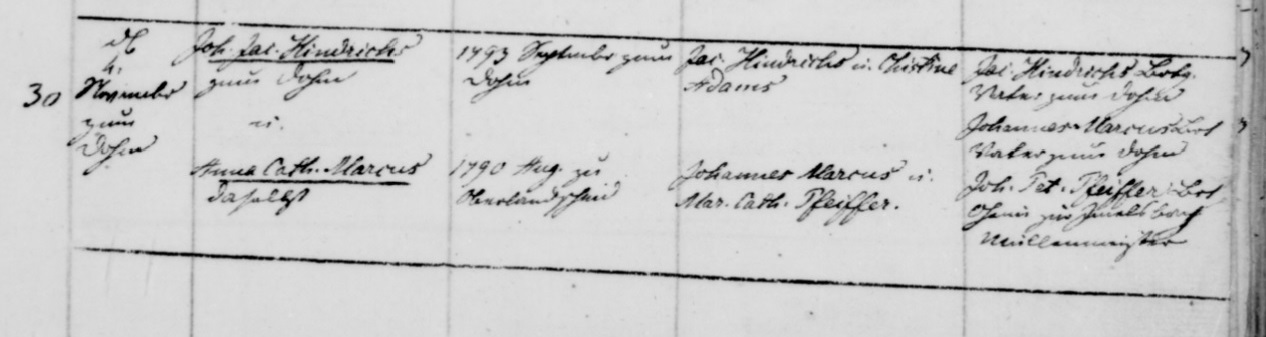 30
d.
4.
November
zum
Dohm
Joh. Jac. Hindrichs
zum Dohm
u.
Anna Cath. Marcus
daselbst
1793 September zum
Dohm
1790 Aug. zu
Oberlandscheid
Jac. Hindrichs u. Christine
Adams
Johannes Marcus u.
Mar. Cath. Pfeiffer.
Jac. Hindrichs
Vater zum Dohm
Johannes Marcus
Vater zum Dohm
Joh. Pet. Pfeiffer
Oheim zur